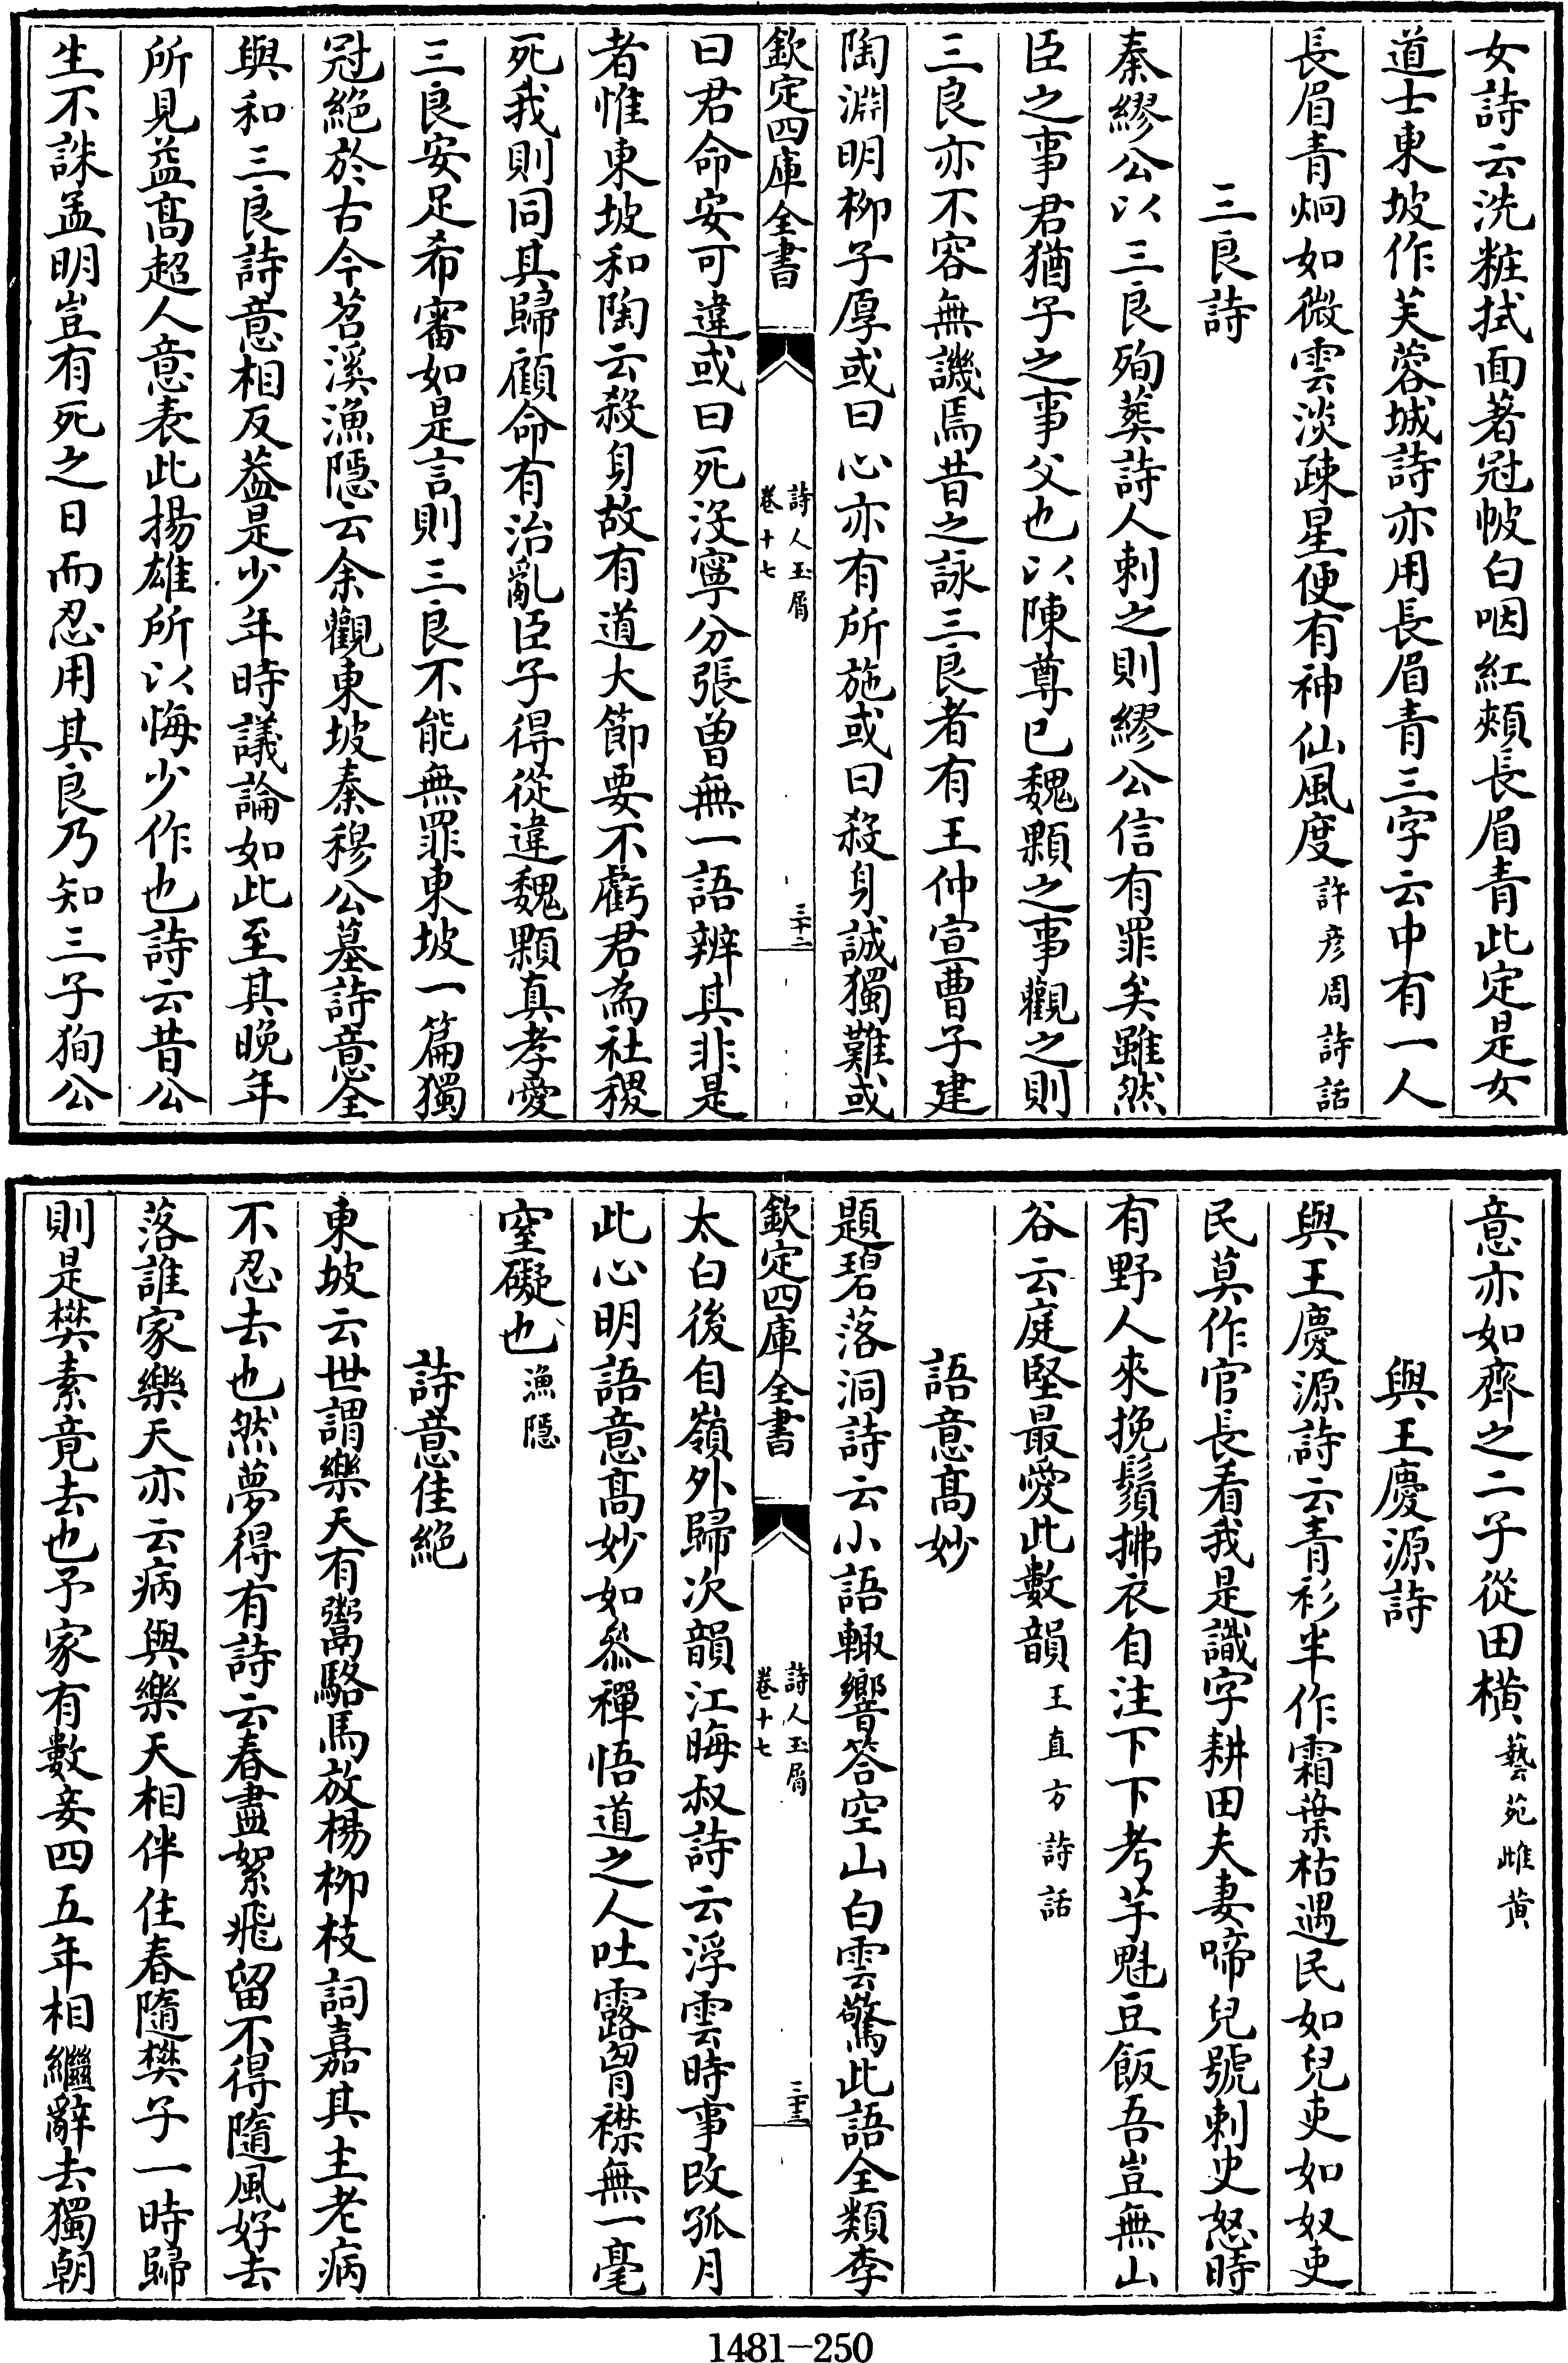 女詩云洗粧拭面著冠帔白咽紅頰長眉青此定是女
道士東坡作芙蓉城詩亦用長眉青三字云中有一人
長眉青炯如微雲淡疎星便有神仙風度許彦周詩話
三良詩
秦繆公以三良殉葬詩人刺之則繆公信有罪矣雖然
臣之事君猶子之事父也以陳尊已魏顆之事觀之則
三良亦不容無譏焉昔之詠三良者有王仲宣曹子建
陶淵明柳子厚或曰心亦有所施或曰殺身誠獨難或
欽定四庫全書
詩人玉屑
卷十七
三十二
曰君命安可違或曰死沒寧分張曽無一語辨其非是
者惟東坡和陶云殺身故有道大節要不虧君為社稷
死我則同其歸顧命有治亂臣子得從違魏顆真孝愛
三良安足希審如是言則三良不能無罪東坡一篇獨
冠絕於古今苕溪漁隱云余觀東坡秦穆公墓詩意全
與和三良詩意相反葢是少年時議論如此至其晚年
所見益髙超人意表此揚雄所以悔少作也詩云昔公
生不誅孟明豈有死之日而忍用其良乃知三子狥公
意亦如齊之二子從田横藝苑雌黄
與王慶源詩
與王慶源詩云青衫半作霜葉枯遇民如兒吏如奴吏
民莫作官長看我是識字耕田夫妻啼兒號刺史怒時
有野人來挽鬚拂衣自注下下考芋魁豆飯吾豈無山
谷云庭堅最愛此數韻王直方詩話
語意髙妙
題碧落洞詩云小語輙響答空山白雲驚此語全類李
欽定四庫全書
詩人玉屑
卷十七
三十三
太白後自嶺外歸次韻江晦叔詩云浮雲時事改孤月
此心明語意髙妙如叅禪悟道之人吐露胷襟無一毫
窒礙也漁隱
詩意佳絶
東坡云世謂樂天有鬻駱馬放楊柳枝詞嘉其主老病
不忍去也然夢得有詩云春盡絮飛留不得隨風好去
落誰家樂天亦云病與樂天相伴住春隨樊子一時歸
則是樊素竟去也予家有數妾四五年相繼辭去獨朝
1481-250